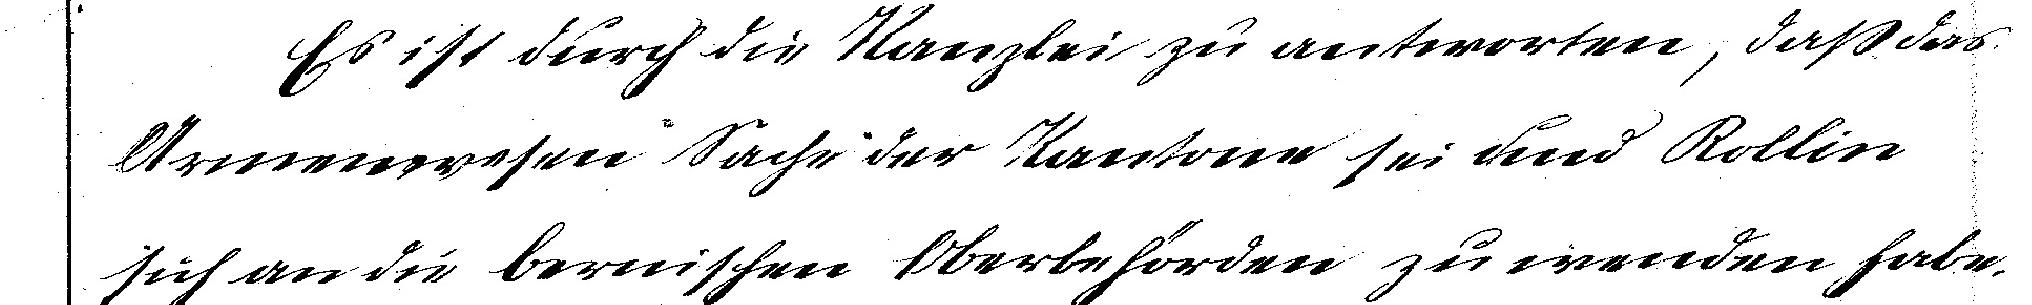 Es ist durch die Kanzlei zu antworten, daß das
Armenwesen Sache der Kantone sei und Rollin
sich an die bernischen Oberbehörden zu wenden habe.